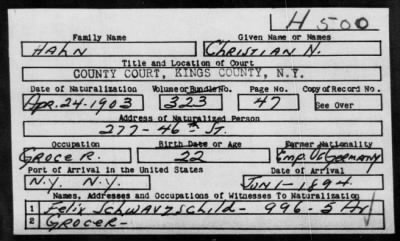 H 500
Family Name Given Name or Names
HAHN CHRISTIAN N.
Title and Location of Court
COUNTY COURT, KINGS COUNTY, N.Y.
Date of Naturalization Volume or Bundle No. Page No. Copy of Record No.
Apr. 24-1903 323 47 See Over
Address of Naturalized Person
277-46th St.
Occupation Birth Date or Age Former Nationality
GROCER. 22 Emp. of Germany
Port of Arrival in the United States Date of Arrival
N.Y. N.Y. JUN 1-1894
Names, Addresses and Occupations of Witnesses To Naturalization
1 Felix Schwarzschild- 996-5 Av
2 GROCER-